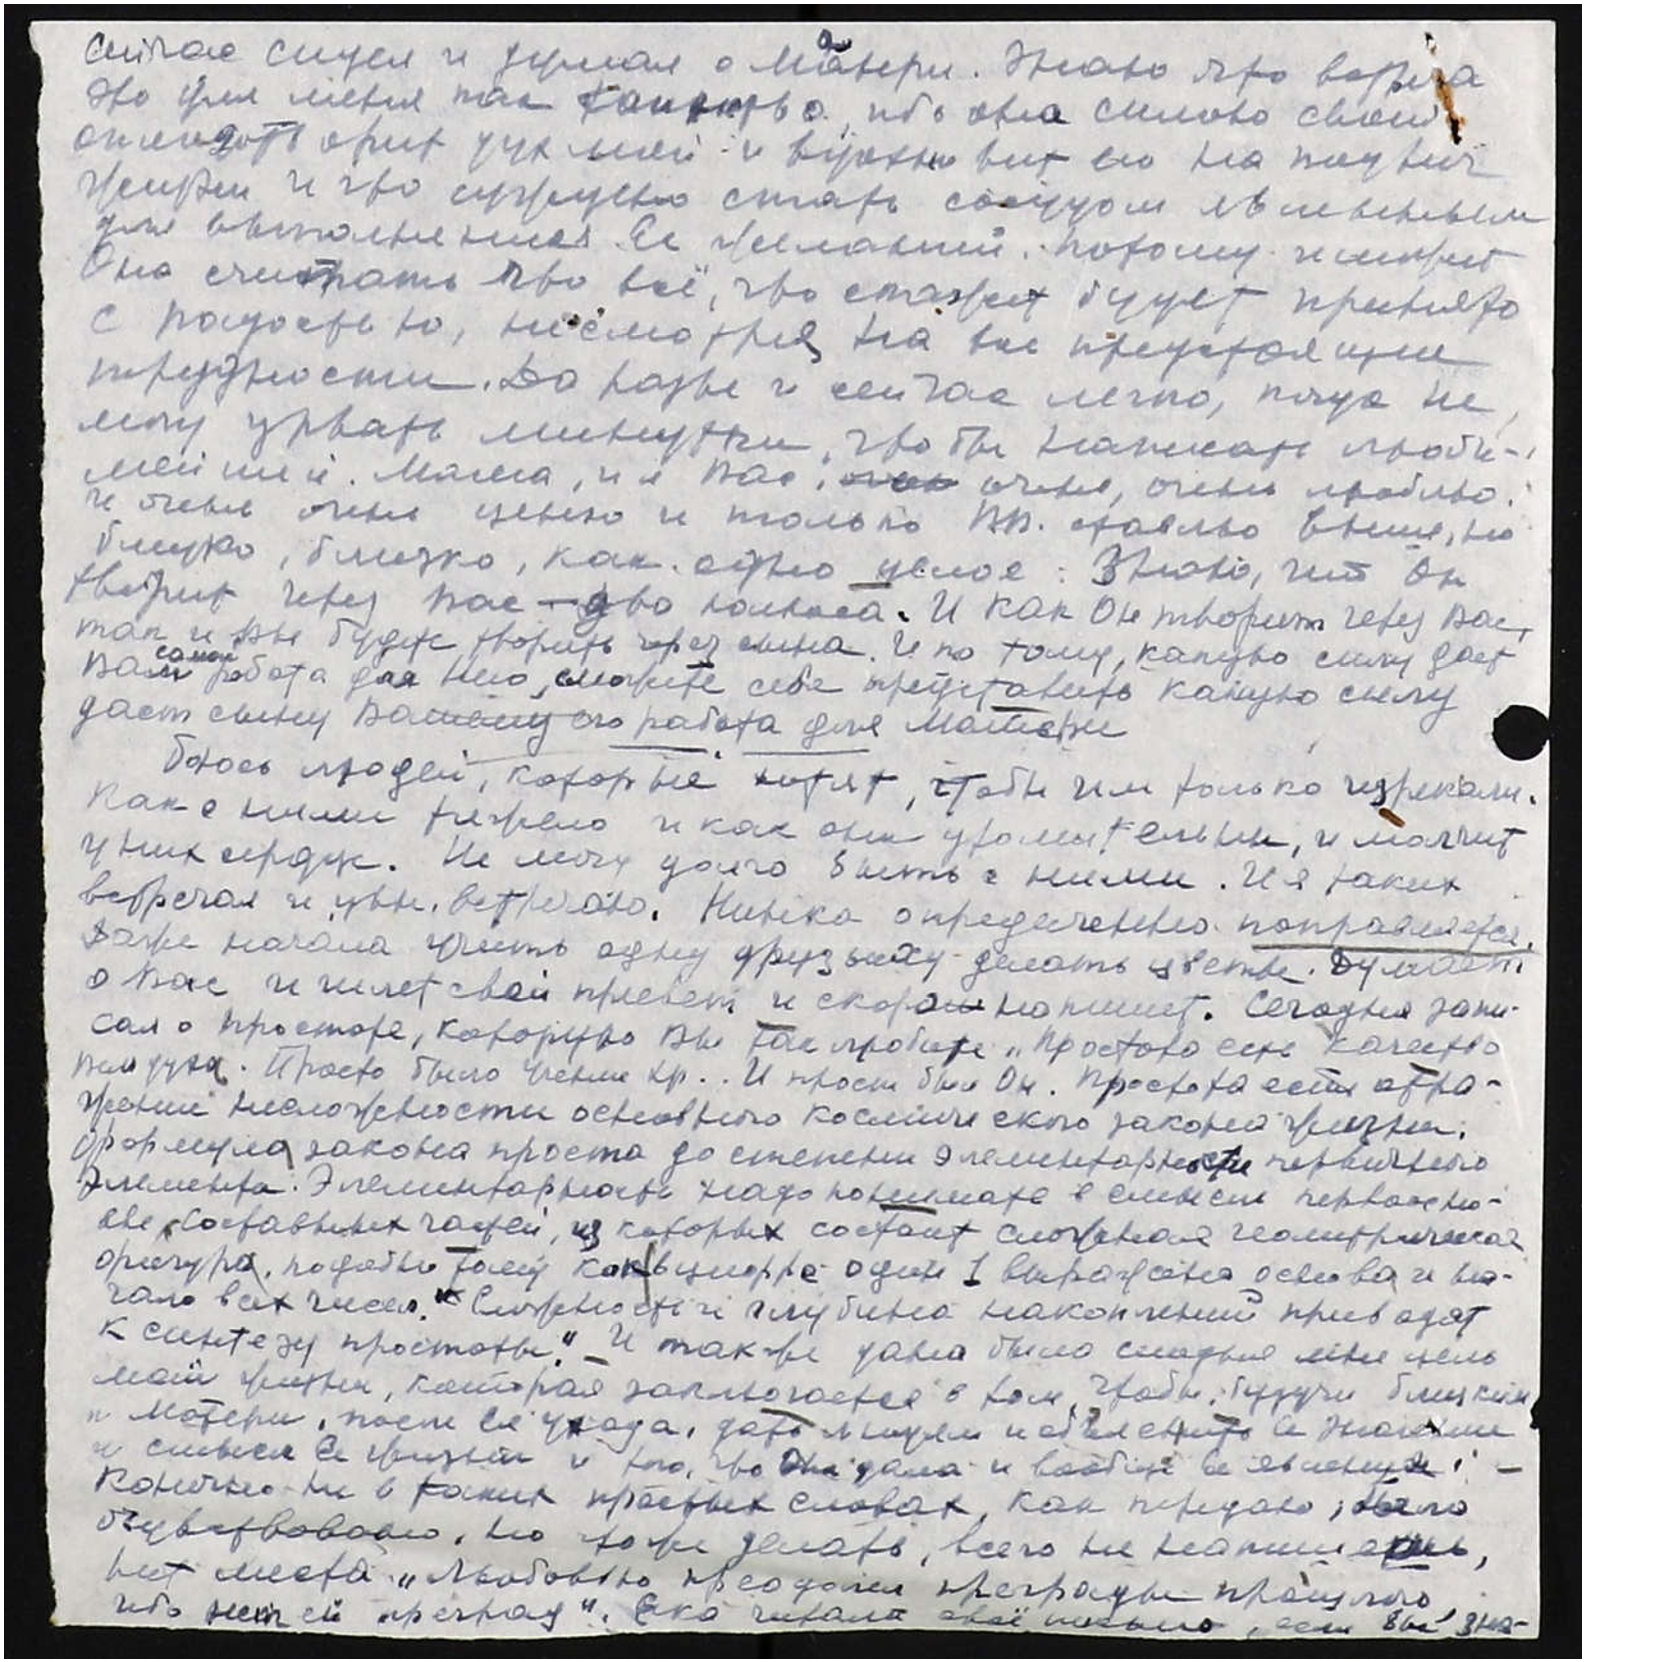 Сейчас сидел и думал о Матери. Знаю что встреча
это для меня так, ибо она силою своей
оплодотворит дух мой и вдохновит его на подвиг
жизни и что суждено стать сосудом явленным
для выполнения Ее желаний. Потому и может
Она считать что всё, что скажет будет принято
с радостью, несмотря на все предстоящие
трудности. Да разве и сейчас легко, когда не
могу урвать минутки, чтобы написать люби-
мейшей. Мама, и я Вас, очень, очень люблю.
и очень очень ценю и только Вл. ставлю выше, но
близко, близко, как одно целое. Знаю, что Он
творит через Вас — два полюса. И как Он творит через Вас,
так и Вы будете творить через сына. И по тому, какую силу дает
Вам самой работа для Него, сможете себе представить какую силу
даст сыну Вашему его работа для Матери
Боюсь людей, которые хотят, чтобы им только изрекали.
Как с ними тяжело и как они утомительны, и молчит
у них сердце. Не могу долго быть с ними. И я таких
встречал и, увы, встречаю. Нинка определенно поправляется.
Даже начала учить одну друзьиху делать цветы. Думает
о Вас и шлет свой привет и скоро напишет. Сегодня запи-
сал о простоте, которую Вы так любите „Простота есть качество
духа. Просто было Учение Хр.. И прост был Он. Простота есть отра-
жение несложности основного космического закона жизни.
Формула закона проста до степени элементарности первичного
элемента. Элементарность надо понимать в смысле первоосно-
вы составных частей, из которых состоит сложная геометрическая
фигура, подобно тому как в цифре один 1 выражена основа и на-
чало всех чисел." „Сложность и глубина накоплений приводят
к синтезу простоты." И также дана была сегодня мне цель
моей жизни, которая заключается в том, чтобы, будучи близким
к Матери, после Ея ухода, дать людям и объяснить Ее значение
и смысл Ее жизни и того, что Она дала и вообще Ее явления. —
Конечно не в таких простых словах, как передаю, было
очувствовано, но что же делать, всего не напишешь,
нет места. „Любовью преодолеем преграды прошлого,
ибо нет ей преград". Ека читала своё письмо, если бы зна-